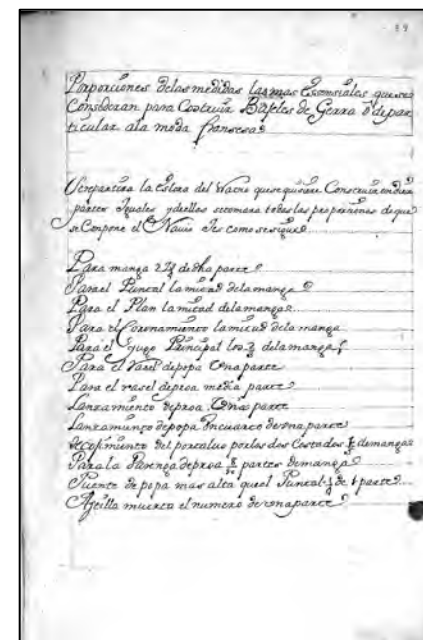 89
Proporciones delas medidas las mas Esensiales que se
Consideran para Costruir Bajeles de Gerra o de par
ticular ala moda fransesa
Se repartira la Eslora del Navio que se quisiere Construir en diez
partes Iguales y de ellas se toman todas las proporciones de que
se Conpone el Navio Ies como se sigue
Para manga 2 de dha parte
Para el Puntal la mitad dela manga
Para el Plan la mitad dela manga
Para el Coronamiento la mitad dela manga
Para el Yugo Prinsipal los 2/3 dela manga
Para el Rasel de popa Vna parte
Para el rasel de proa media parte
Lanzamiento de proa Vna parte
Lanzamiento de popa Vn cuarto de vna parte
del portalus por los dos Costados de manga
Para la de proa partes de manga
Puente de popa mas alta que el Puntal de parte
muerto el numero de vna parte